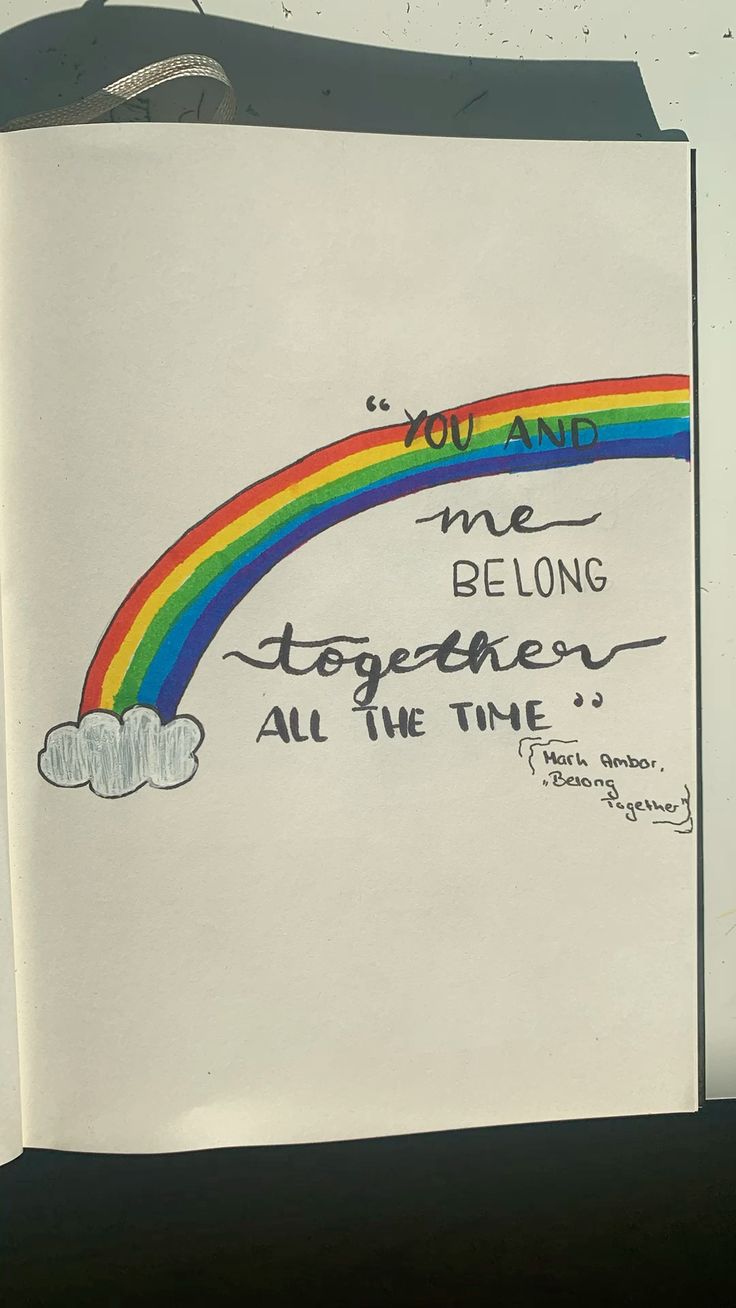 “YOU AND
me
BELONG
together
ALL THE TIME”
Mark Ambor,
„Belong
Together”